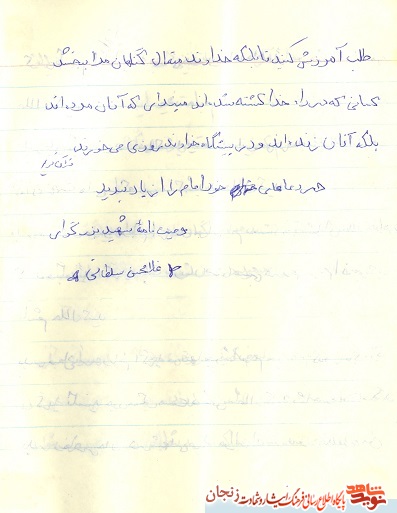 طلب آموزش کنید تا بلکه خداوند متعال گناهان مرا ببخشد
کسانی که در راه خدا کشته شده‌اند مپندارید که آنان مرده اند
بلکه آنان زنده‌اند و در پیشگاه خداوند روزی می خورند
قرآن کریم
در دعاهای خود امام را از یاد نبرید
وصیت نامهٔ شهید بزرگوار
غلامحسن سلطانی
نوید شاهد
پایگاه اطلاع رسانی فرهنگ ایثار و شهادت زنجان